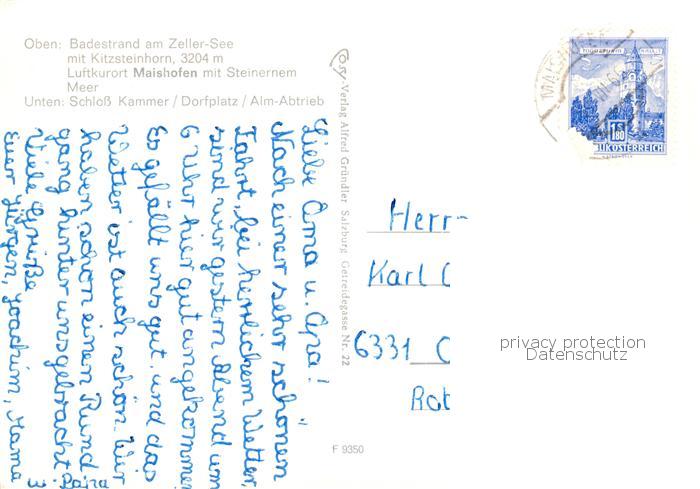 Oben: Badestrand am Zeller-See
mit Kitzsteinhorn, 3204 m
Luftkurort Maishofen mit Steinernem
Meer
Unten: Schloß Kammer / Dorfplatz / Alm-Abtrieb
Liebe Oma u. Opa!
Nach einer sehr schönen
Fahrt, bei herrlichem Wetter,
sind wir gestern Abend um
6 Uhr hier gut angekommen
Es gefällt uns gut, und das
Wetter ist auch schön. Wir
haben schon einen Rund
gang hinter uns gebracht.
Viele Grüße
Euer Jürgen, Joachim, Mama
u. Papa
Verlag Alfred Gründler Salzburg Getreidegasse Nr. 22
MAISHOFEN
1 S 1.80
REPUBLIK ÖSTERREICH
Herr-
Karl
6331
Rot
privacy protection
Datenschutz
F 9350